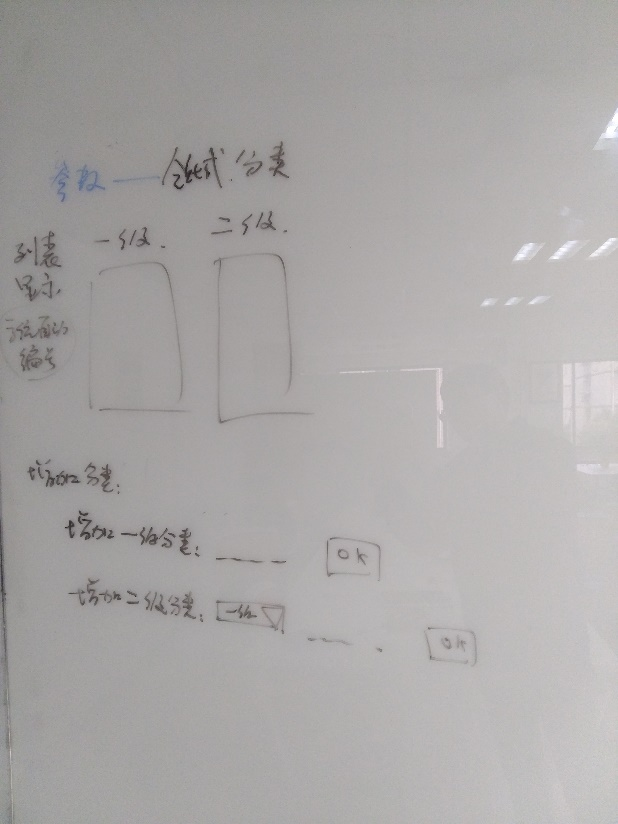 参数——链式分类
列表 一级. 二级.
显示
编号
增加分类:
增加一级分类: ---- OK
增加二级分类: 一级 ---. OK